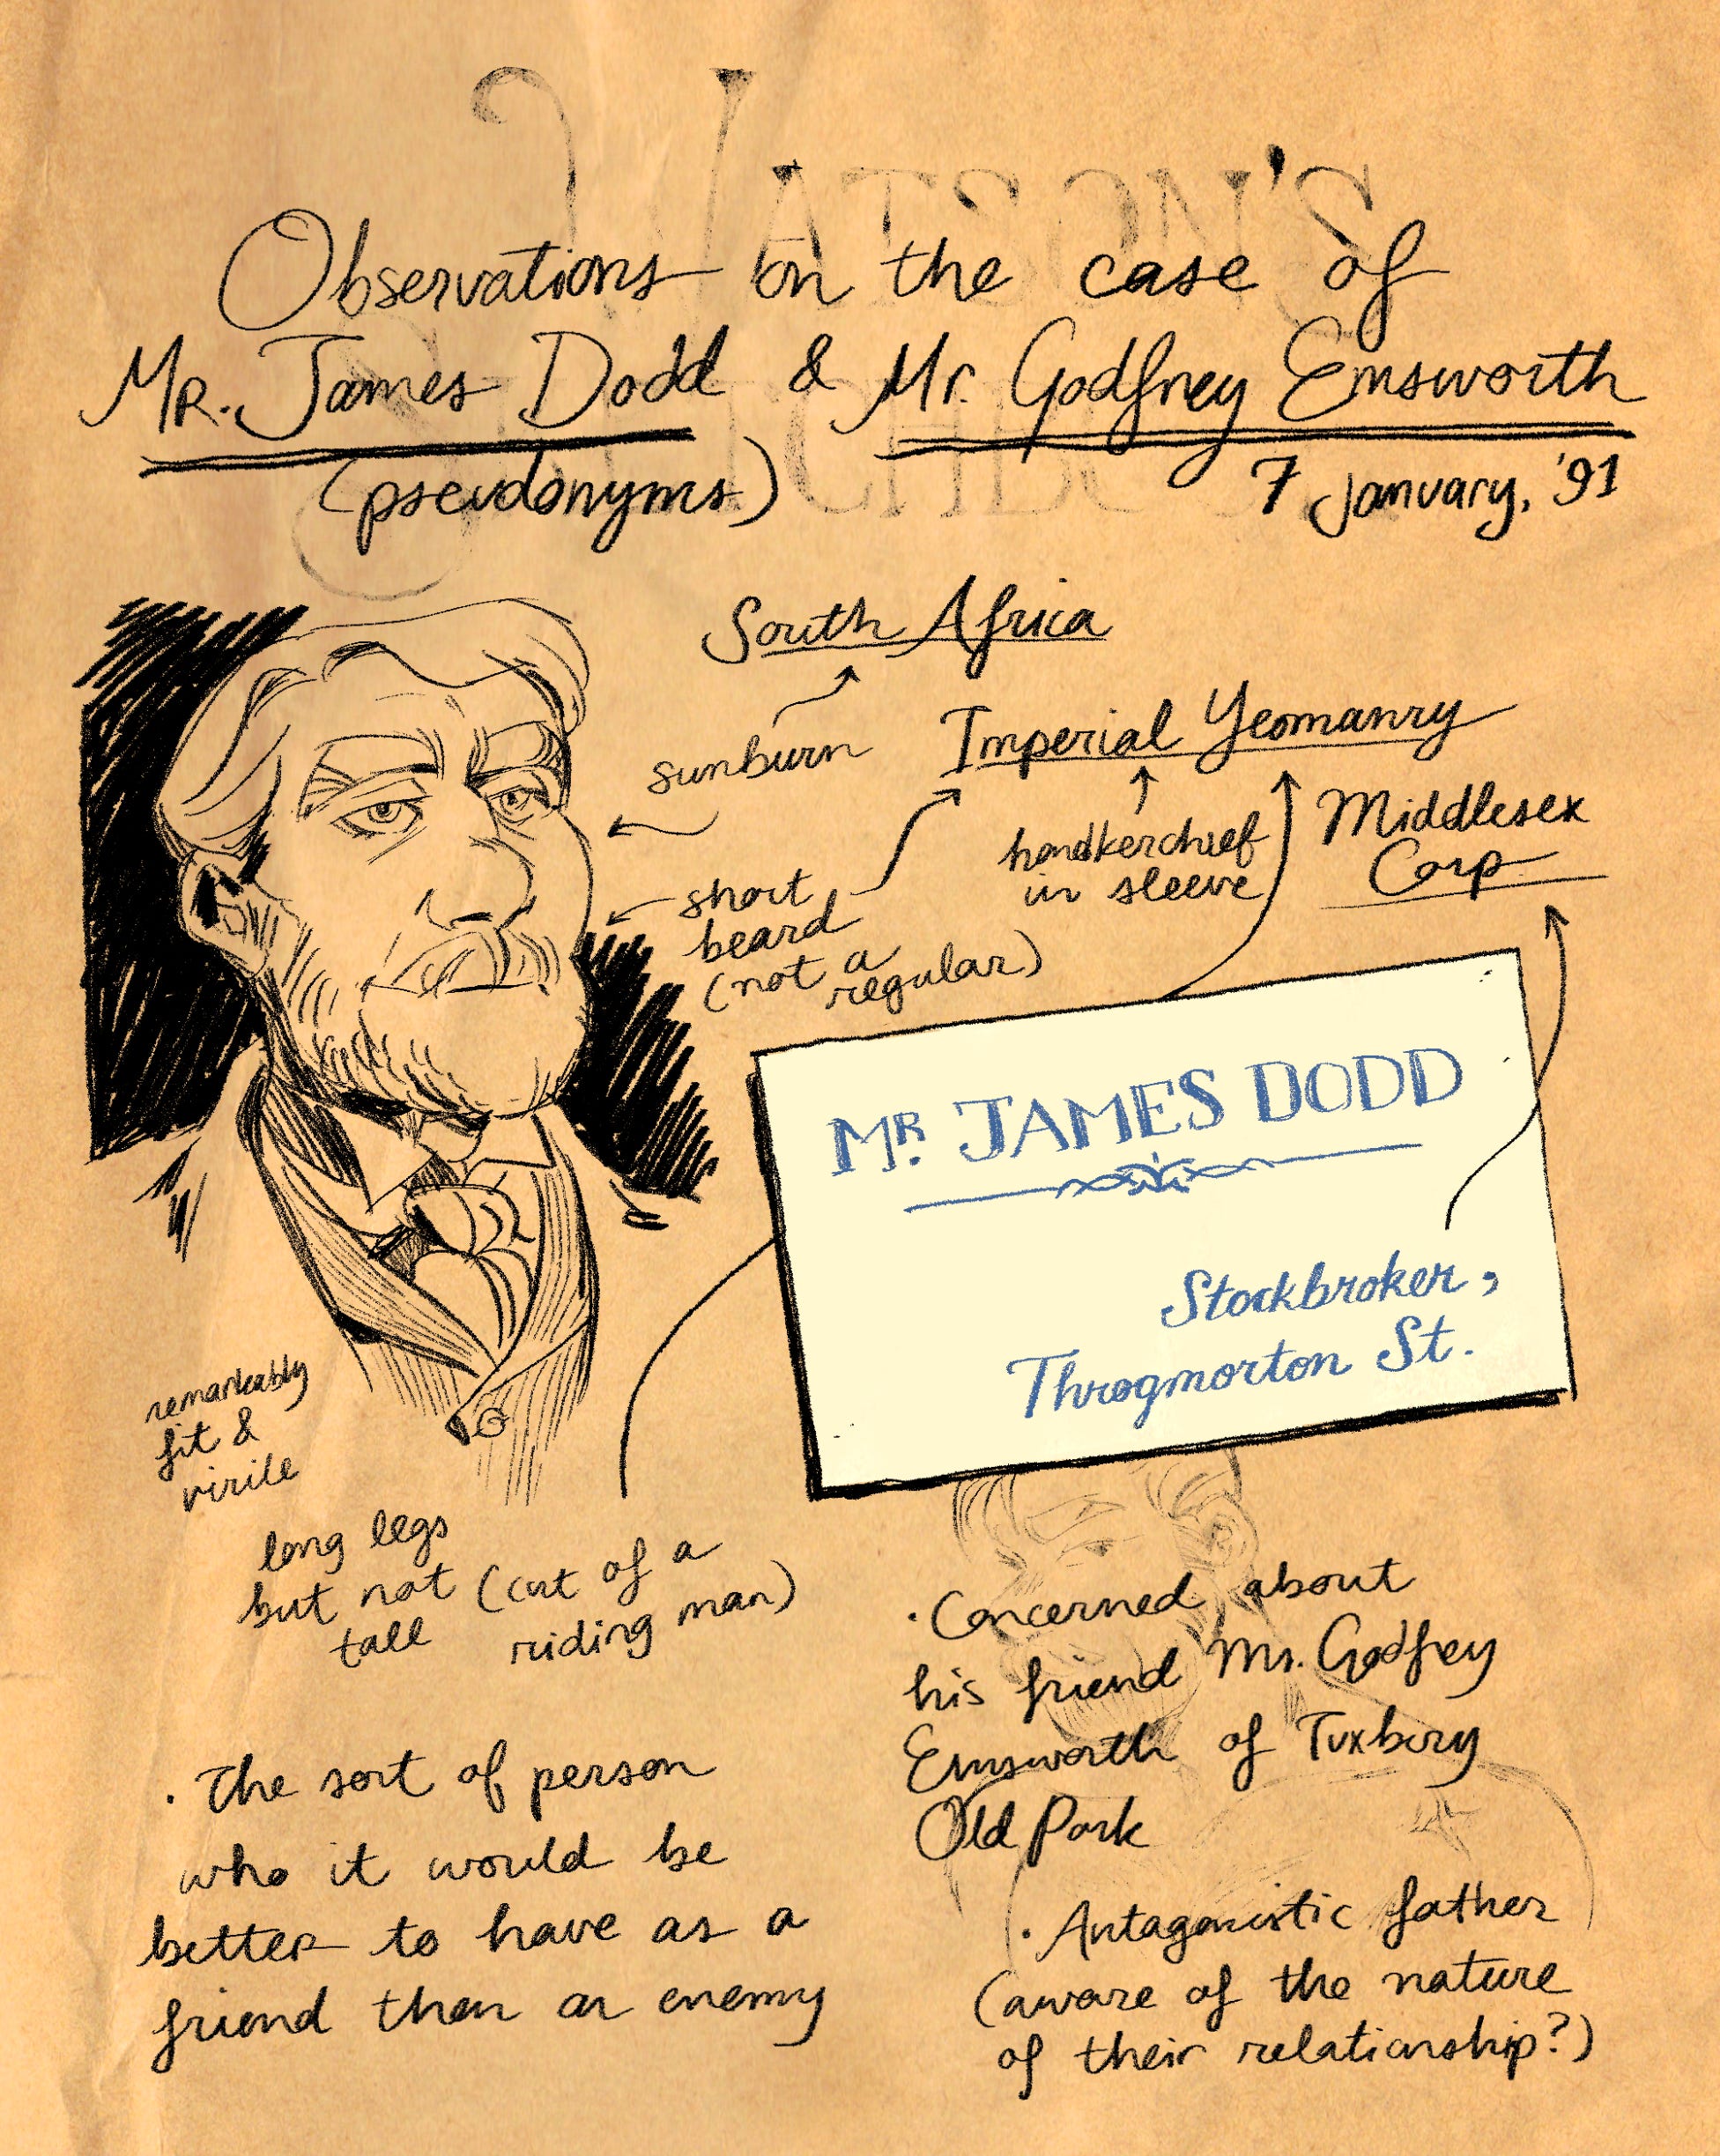 WATSON'S
SKETCHBOOK
Observations on the case of
MR. James Dodd & Mr. Godfrey Emsworth
(pseudonyms)
7 January, '91
South Africa
sunburn
Imperial Yeomanry
handkerchief
in sleeve
Middlesex
Corp
short
beard
(not a
regular)
MR. JAMES DODD
Stockbroker,
Throgmorton St.
remarkably
fit &
virile
long legs
but not (cut of a
tall riding man)
· Concerned about
his friend Mr. Godfrey
Emsworth of Tuxbury
Old Park
· The sort of person
who it would be
better to have as a
friend than an enemy
· Antagonistic father
(aware of the nature
of their relationship?)